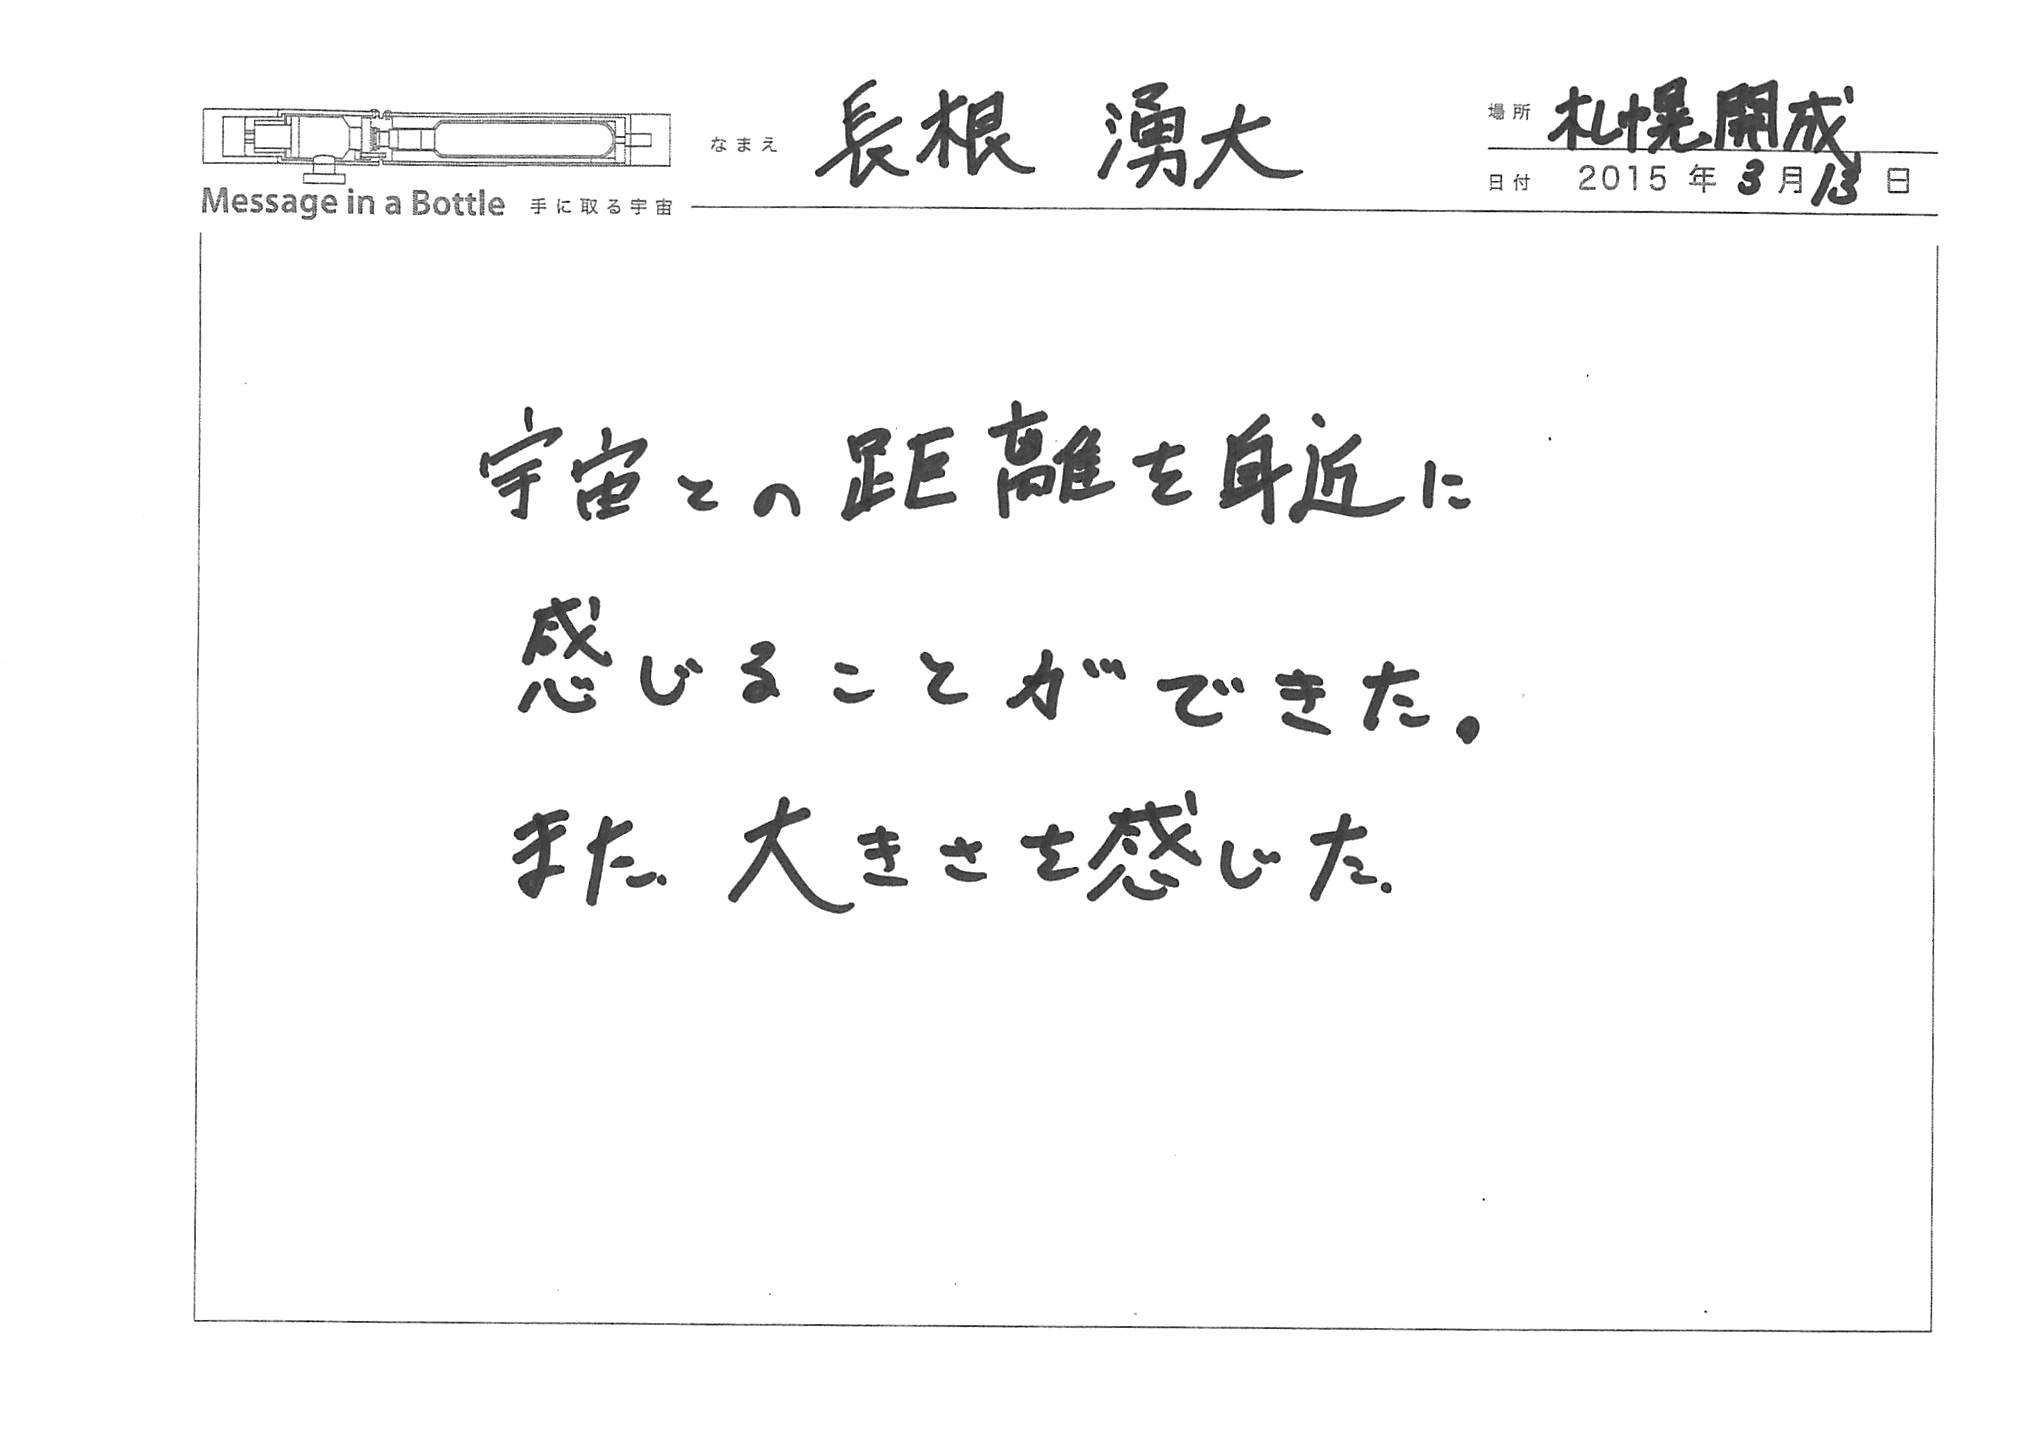 なまえ 長根 湧大
場所 札幌開成
日付 2015年3月13日
Message in a Bottle 手に取る宇宙
宇宙との距離を身近に
感じることができた。
また、大きさを感じた。